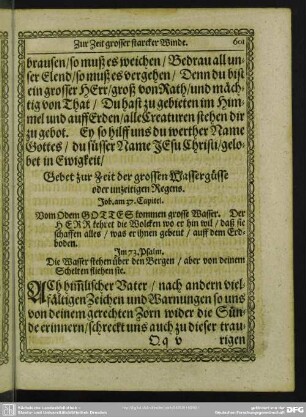 Zur Zeit grosser starcker Winde. 601
brausen/so muß es weichen/Bedrau all un-
ser Elend/so muß es vergehen/Denn du bist
ein grosser HErr/groß von Rath/und mäch-
tig von That/Du hast zu gebieten im Him-
mel und auff Erden/alle Creaturen stehen dir
zu gebot. Ey so hilff uns du werther Name
Gottes/du süsser Name JEsu Christi/gelo-
bet in Ewigkeit/
Gebet zur Zeit der grossen Wassergüsse
oder unzeitigen Regens.
Job. am 37. Capitel.
Vom Odem GOTTES kommen grosse Wasser. Der
HERR kehret die Wolcken wo er hin wil/daß sie
schaffen alles/was er ihnen gebeut/auff dem Erd-
boden.
Im 73. Psalm.
Die Wasser stehen über den Bergen/aber von deinem
Schelten fliehen sie.
ACh himlischer Vater/nach andern viel-
fältigen Zeichen und Warnungen so uns
von deinem gerechten Zorn wider die Sün-
de erinnern/schreckt uns auch zu dieser trau-
Qq v rigen